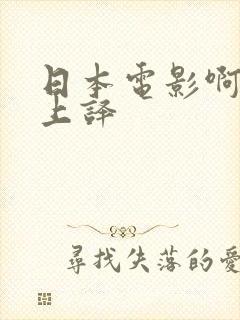 日本電影啊
上譯
尋找失落的愛